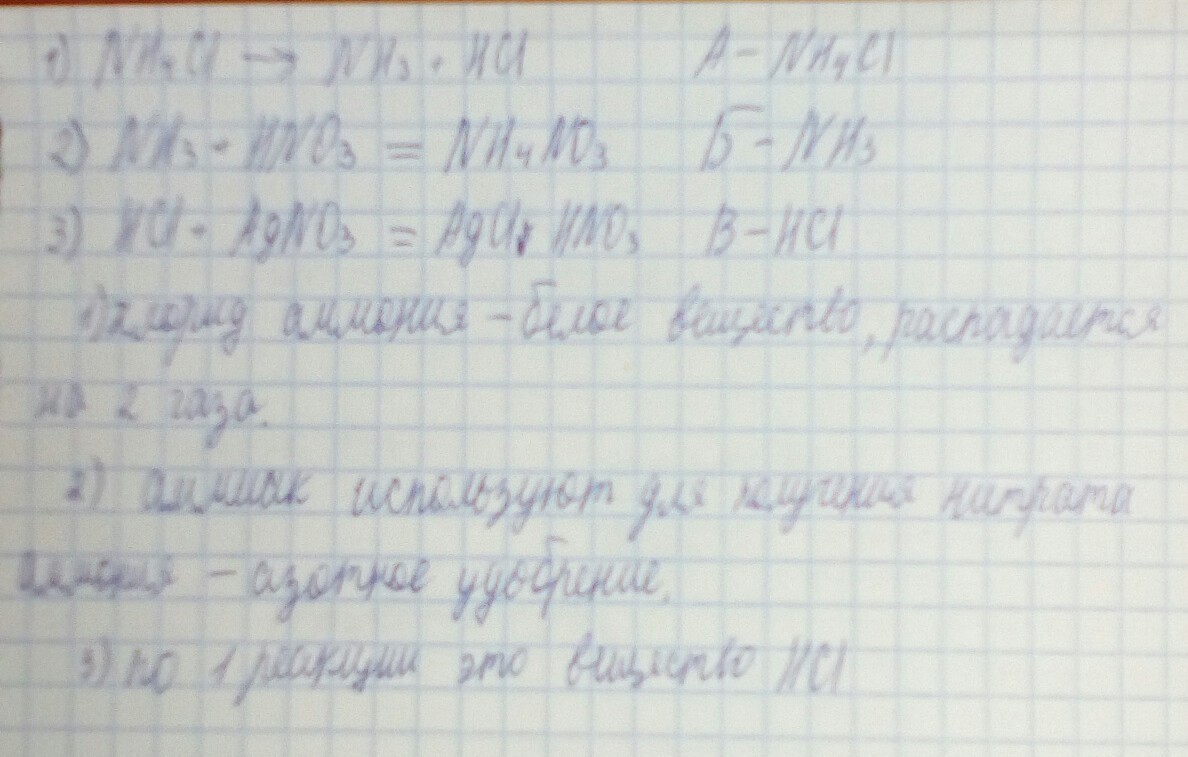 1) NH₄Cl → NH₃ + HCl А – NH₄Cl
2) NH₃ + HNO₃ = NH₄NO₃ Б – NH₃
3) HCl + AgNO₃ = AgCl + HNO₃ В – HCl
1) хлорид аммония – белое вещество, распадается
на 2 газа.
2) аммиак используют для получения нитрата
аммония – азотное удобрение.
3) по 1 реакции это вещество HCl